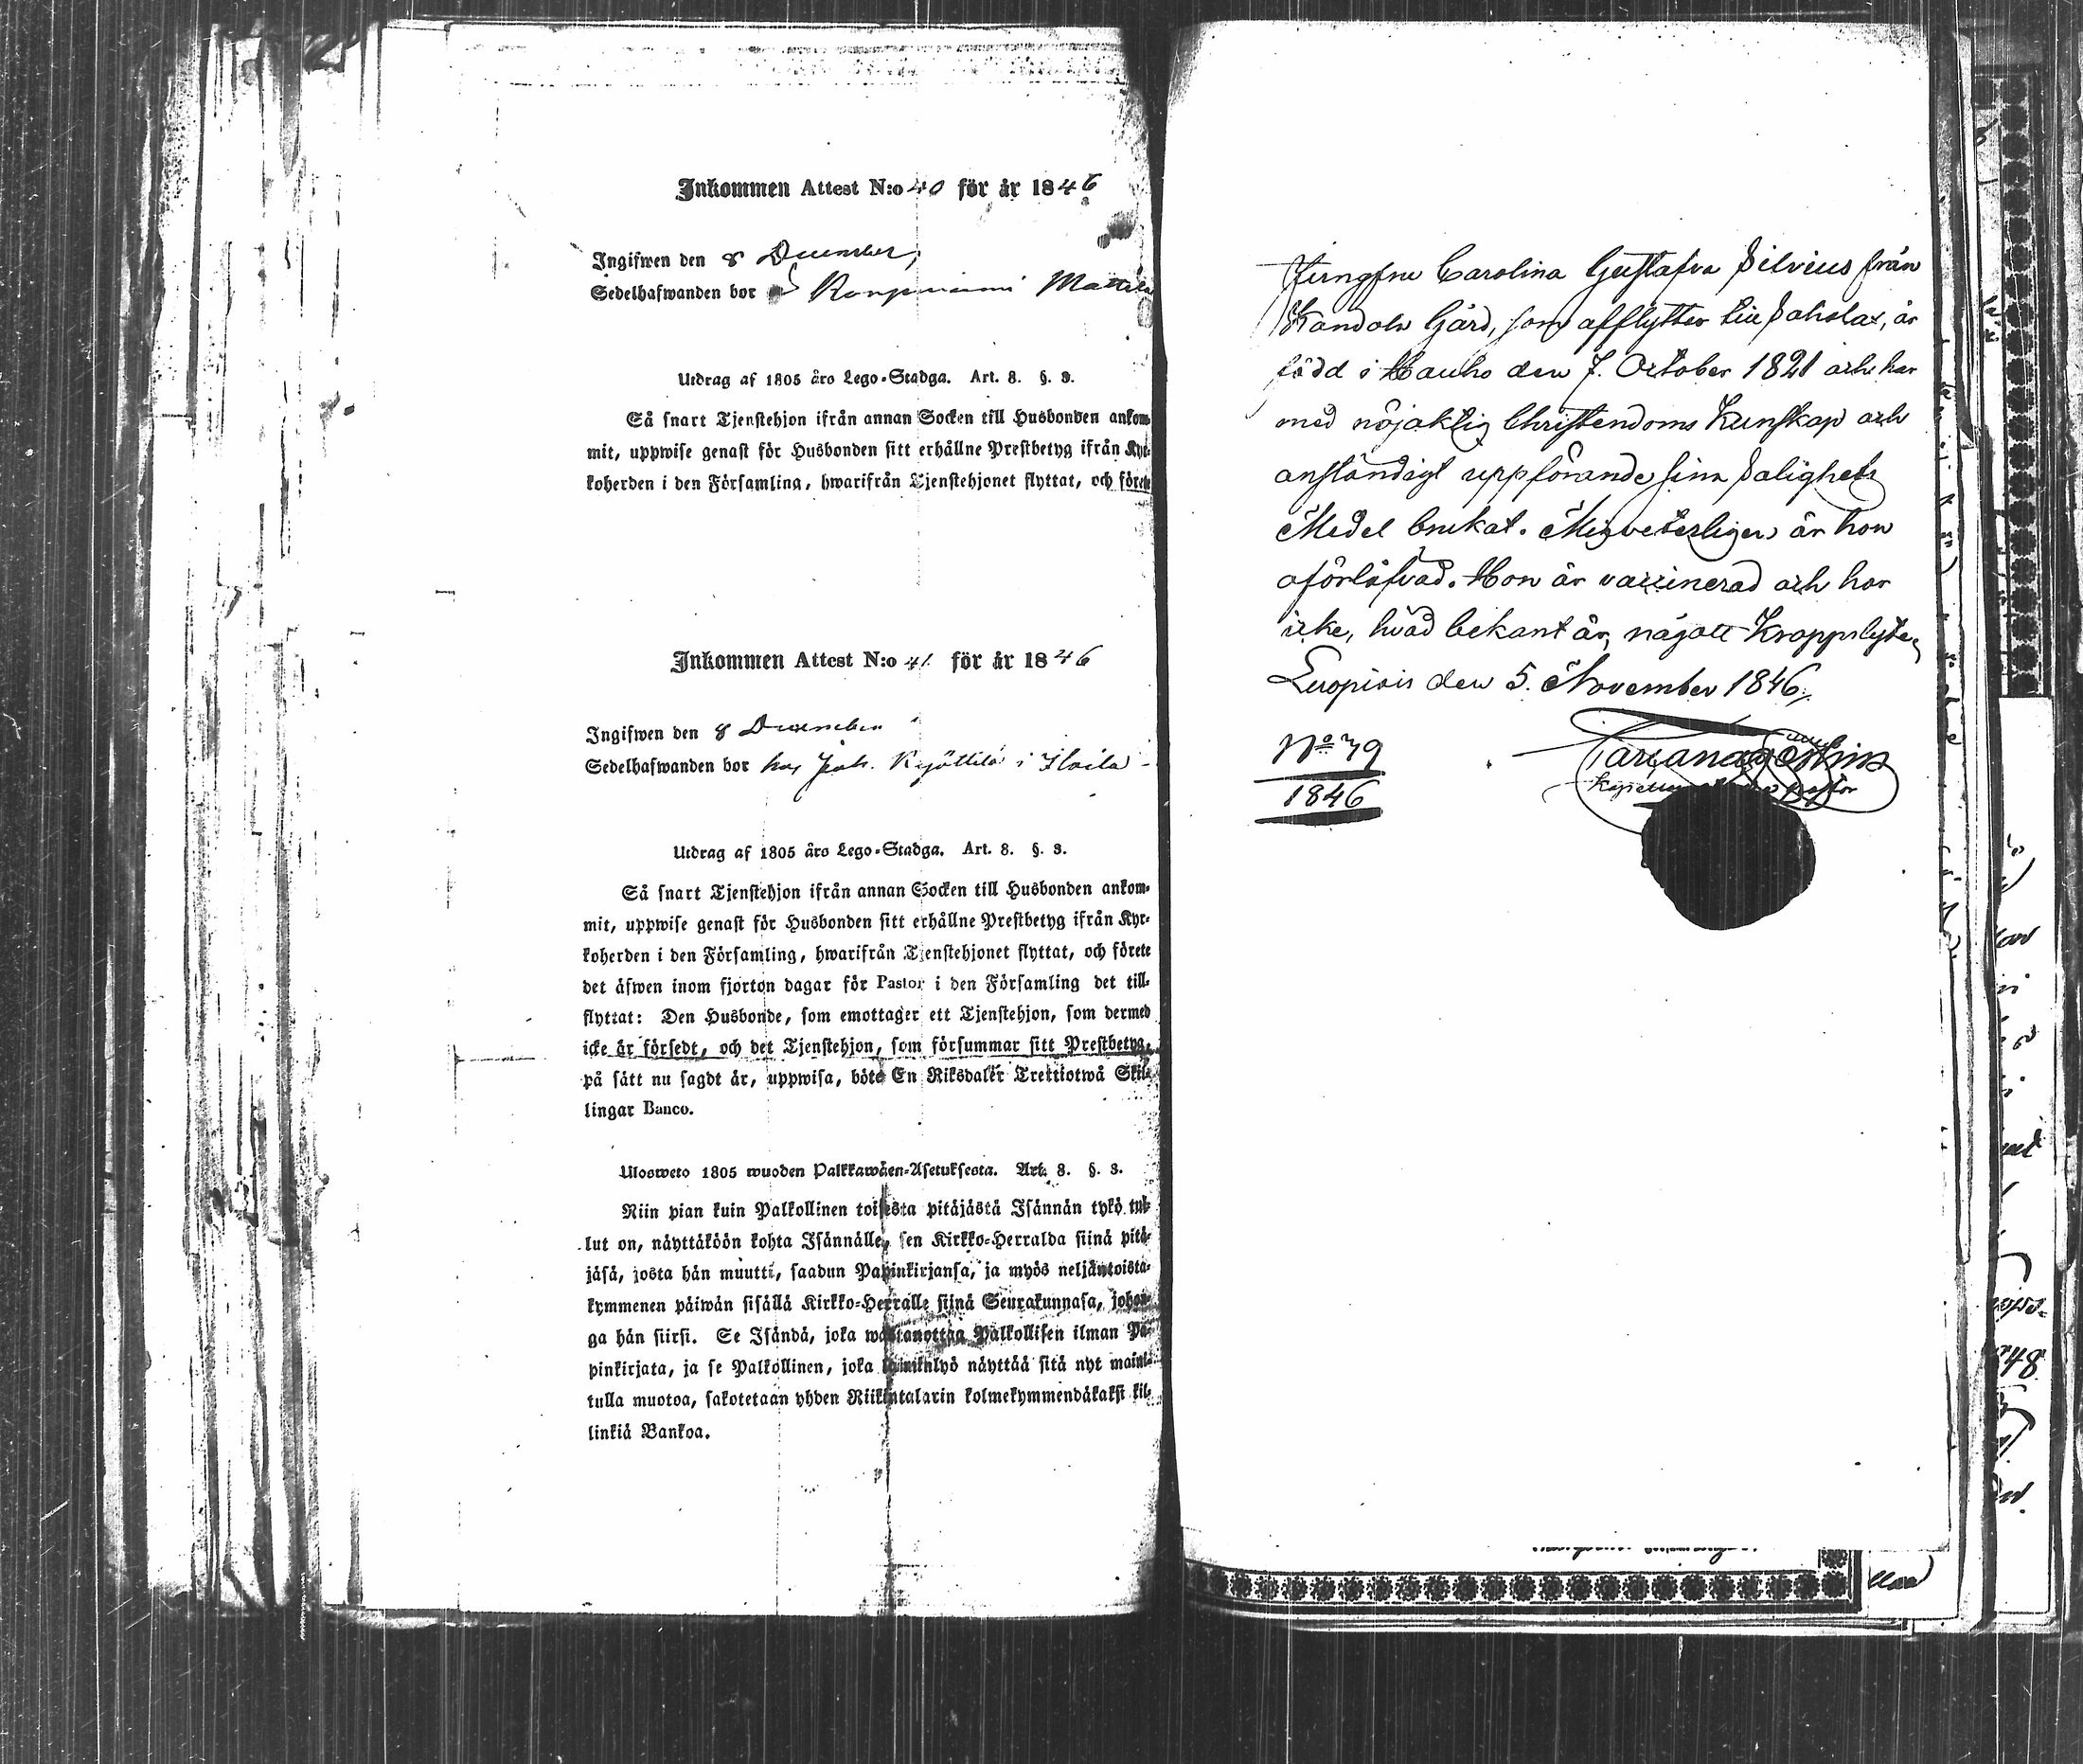 Inkommen Attest N:o 40 för år 1846
Ingifwen den 8 December
Sedelhafwanden bor
Utdrag af 1805 års Lego-Stadga. Art. 8. §. 3.
Så snart Tjenstehjon ifrån annan Socken till Husbonden ankom-
mit, uppwise genast för Husbonden sitt erhållne Prestbetyg ifrån Kyr-
koherden i den Församling, hwarifrån Tjenstehjonet flyttat, och förete
Inkommen Attest N:o 41 för år 1846
Ingifwen den 8 December
Sedelhafwanden bor hos Joh. i
Utdrag af 1805 års Lego-Stadga. Art. 8. §. 3.
Så snart Tjenstehjon ifrån annan Socken till Husbonden ankom-
mit, uppwise genast för Husbonden sitt erhållne Prestbetyg ifrån Kyr-
koherden i den Församling, hwarifrån Tjenstehjonet flyttat, och förete
det äfwen inom fjorton dagar för Pastor i den Församling det till-
flyttat: Den Husbonde, som emottager ett Tjenstehjon, som dermed
icke är försedt, och det Tjenstehjon, som försummar sitt Prestbetyg,
på sätt nu sagdt är, uppwisa, böte En Riksdaler Trettiotwå Skil-
lingar Banco.
Ulosweto 1805 wuoden Palkkawäen-Asetuksesta. Art. 8. §. 3.
Niin pian kuin Palkollinen toisesta pitäjästä Isännän tykö tul-
lut on, näyttäköön kohta Isännälle, sen Kirkko-Herralda siinä pitä-
jäsä, josta hän muutti, saadun Papinkirjansa, ja myös neljäntoista-
kymmenen päiwän sisällä Kirkko-Herralle siinä Seurakunnasa, johon-
ga hän siirsi. Se Isändä, joka wastanottaa Palkollisen ilman Pa-
pinkirjata, ja se Palkollinen, joka laiminlyö näyttää sitä nyt mainit-
tulla muotoa, sakotetaan yhden Riikintalarin kolmekymmendäkaksi kil-
linkiä Bankoa.
Jungfru Carolina Gustafva Silvius från
Kandola Gård, som afflyttar till Sahalax, är
född i Hauho den 7. October 1821 och har
med nöjaktig Christendoms Kunskap och
anständigt uppförande sina Salighets
Medel brukat. Migveterligen är hon
oförlofvad. Hon är vaccinerad och har
icke, hvad bekant är, någott Kroppslyte,
Luopiois den 5. November 1846.
N:o 79
1846